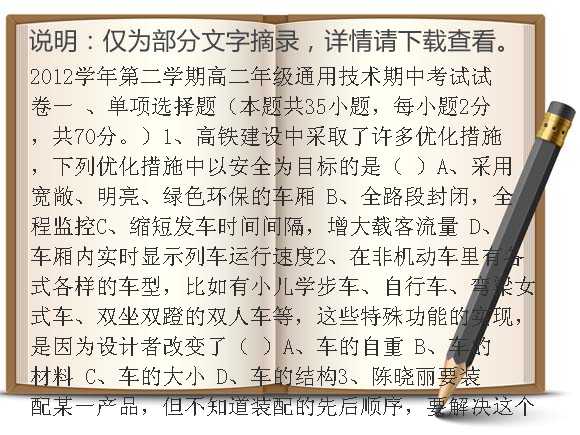 说明：仅为部分文字摘录，详情请下载查看。
2012学年第二学期高二年级通用技术期中考试试
卷一 、单项选择题（本题共35小题，每小题2分
，共70分。）1、高铁建设中采取了许多优化措施
，下列优化措施中以安全为目标的是（ ）A、采用
宽敞、明亮、绿色环保的车厢 B、全路段封闭，全
程监控C、缩短发车时间间隔，增大载客流量 D、
车厢内实时显示列车运行速度2、在非机动车里有各
式各样的车型，比如有小儿学步车、自行车、弯梁女
式车、双坐双蹬的双人车等，这些特殊功能的实现，
是因为设计者改变了（ ）A、车的自重 B、车的
材料 C、车的大小 D、车的结构3、陈晓丽要装
配某一产品，但不知道装配的先后顺序，要解决这个